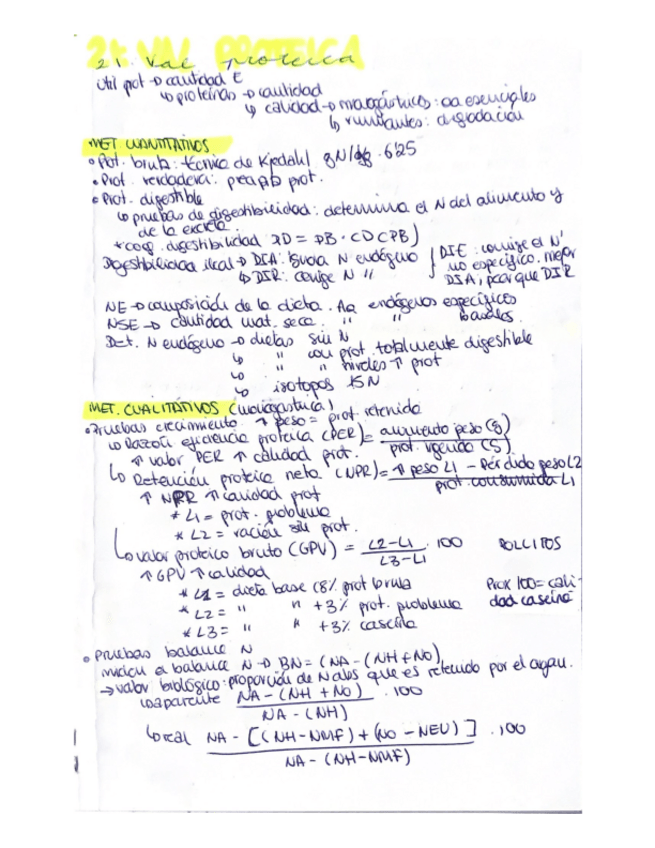 21. Val proteica
util prot → cantidad E
↳ proteínas → cantidad
↳ calidad → monogástricos: aa esenciales
↳ rumiantes: degradación
MET CUANTITATIVOS
• Prot. bruta: técnica de Kjedahl gN/kg . 6'25
• Prot. verdadera: prot.
• Prot. digestible
↳ pruebas de digestibilidad: determina el N del alimento y
de la excreta
* coef. digestibilidad PD = PB · CDCPB)
Digestibilidad ileal → DIA: N endógeno
↳ DIR: corrige N "
DIE: corrige el N
no específico. mejor
DIA, porque DIR
NE → composición de la dieta. Aa endógenos específicos
NSE → cantidad mat. seca. " " basales.
Det. N endógeno → dietas sin N
↳ " con prot. totalmente digestible
↳ " " niveles ↑ prot
↳ isotopos 15N
MET. CUALITATIVOS (monogástrica)
• Pruebas crecimiento. ↑ peso = prot retenida
↳ Razón eficiencia proteica (PER) = aumento peso (g) / prot. ingerida (g)
↑ valor PER ↑ calidad prot.
↳ Retención proteica neta (NPR) = ↑ peso L1 - Pérdida peso L2 / prot. consumida L1
↑ NPR ↑ calidad prot
* L1 = prot. problema
* L2 = ración sin prot.
↳ valor proteico bruto (GPV) = L2-L1 / L3-L1 . 100 POLLITOS
↑ GPV ↑ calidad
* L1 = dieta base (8% prot bruta
* L2 = " " + 3% prot. problema
* L3 = " " + 3% caseína
Prox 100 = cali-
dad caseína
• Pruebas balance N
miden el balance N → BN = (NA - (NH + NO)
→ valor biológico: proporción de N abs que es retenido por el organ.
↳ aparente NA - (NH + NO) / NA - (NH) . 100
↳ real NA - [(NH-NMF) + (NO - NEU)] / NA - (NH-NMF) . 100